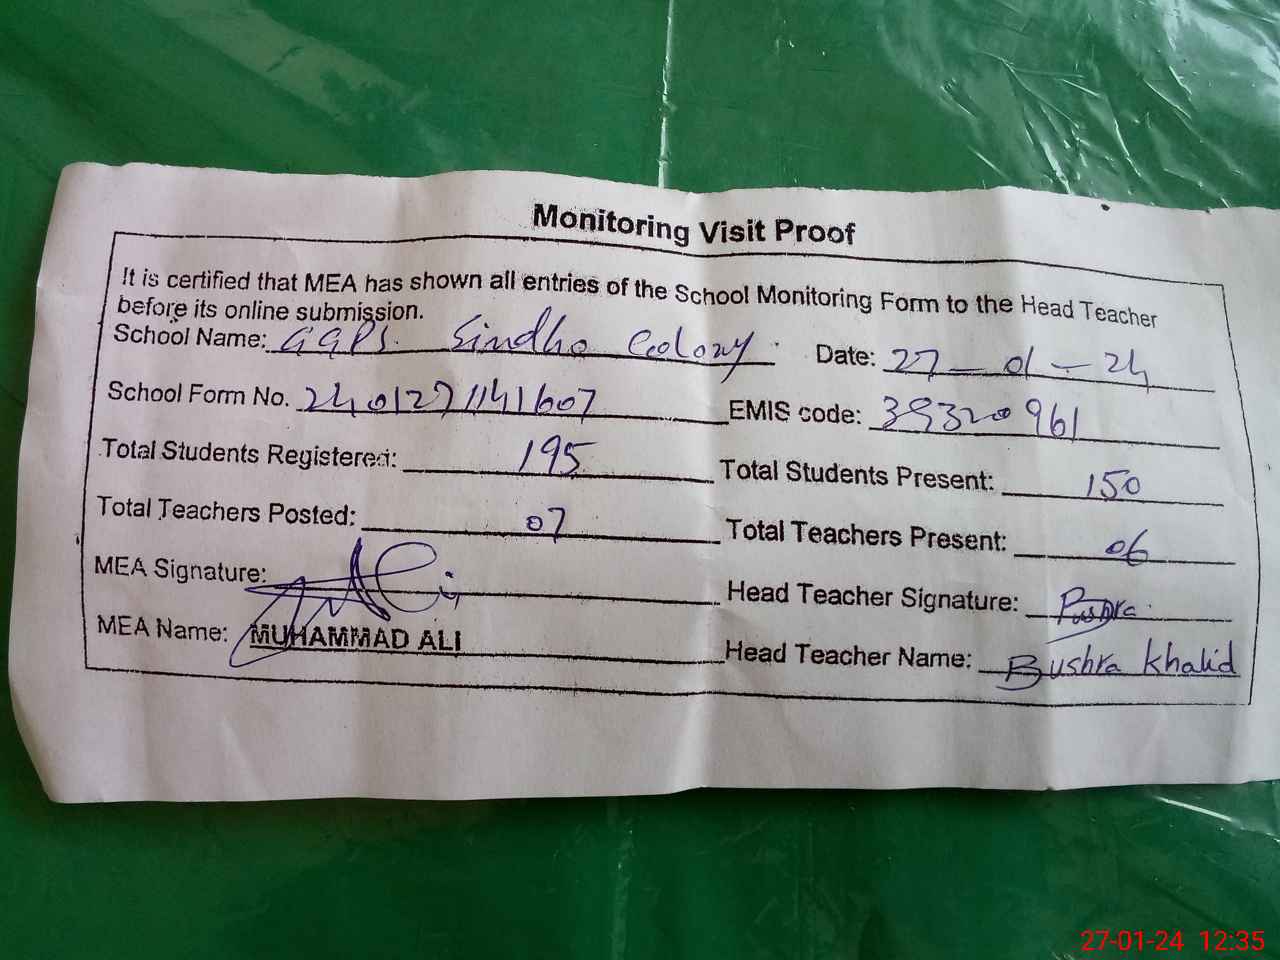 Monitoring Visit Proof
It is certified that MEA has shown all entries of the School Monitoring Form to the Head Teacher
before its online submission.
School Name: GGPS. Sindho Colony Date: 27-01-24
School Form No. 2401271141607 EMIS code: 39320961
Total Students Registered: 195 Total Students Present: 150
Total Teachers Posted: 07 Total Teachers Present: 06
MEA Signature: Head Teacher Signature: Bushra
MEA Name: MUHAMMAD ALI Head Teacher Name: Bushra Khalid
27-01-24 12:35